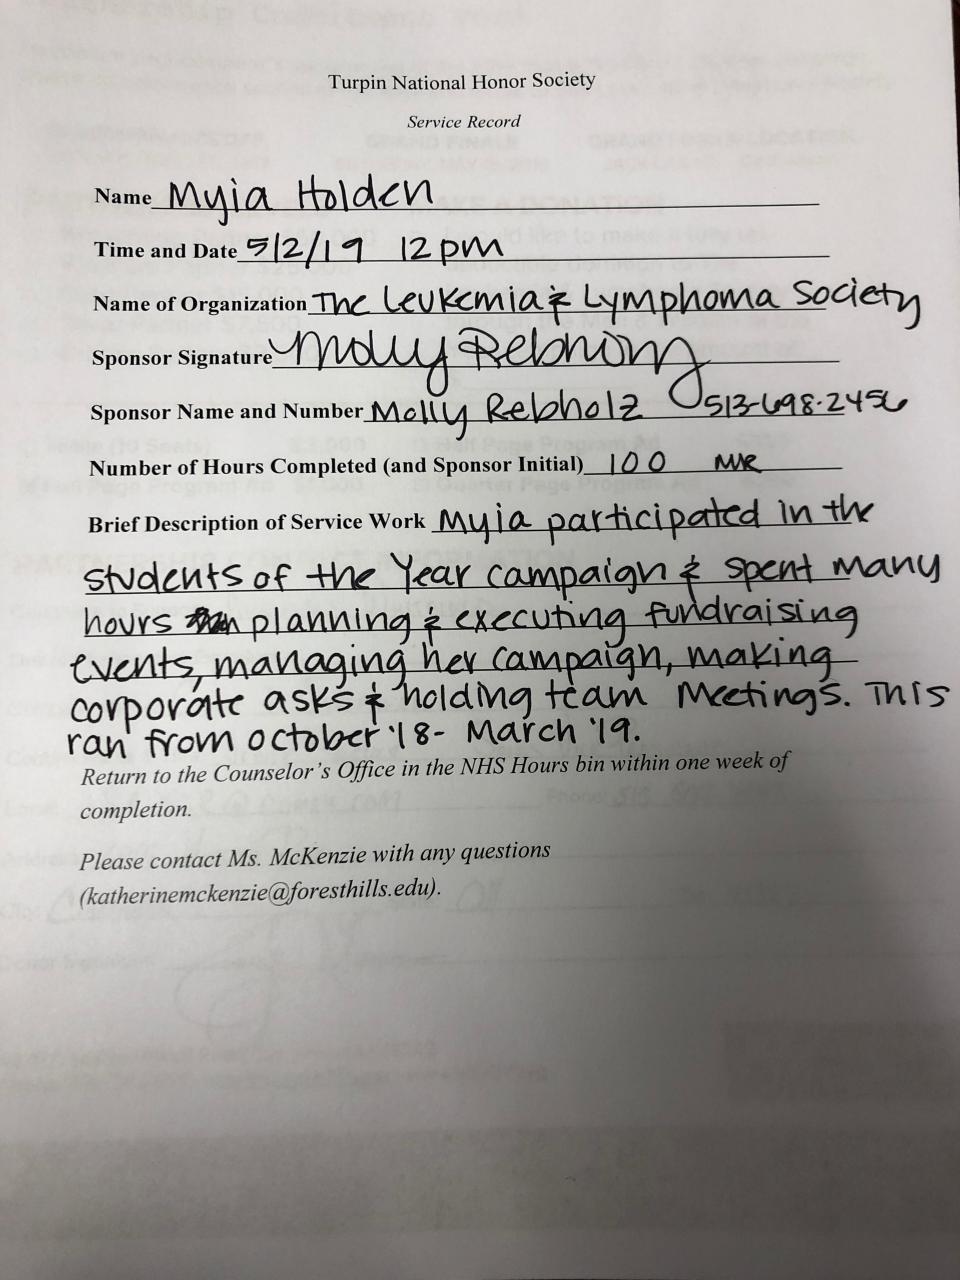 Turpin National Honor Society
Service Record
Name Myia Holden
Time and Date 5/2/19 12pm
Name of Organization The Leukemia & Lymphoma Society
Sponsor Signature Molly Rebholz
Sponsor Name and Number Molly Rebholz 513-698-2456
Number of Hours Completed (and Sponsor Initial) 100 MR
Brief Description of Service Work Myia participated in the
students of the Year campaign & spent many
hours planning & executing fundraising
events, managing her campaign, making
corporate asks & holding team Meetings. This
ran from october '18- March '19.
Return to the Counselor's Office in the NHS Hours bin within one week of
completion.
Please contact Ms. McKenzie with any questions
(katherinemckenzie@foresthills.edu).